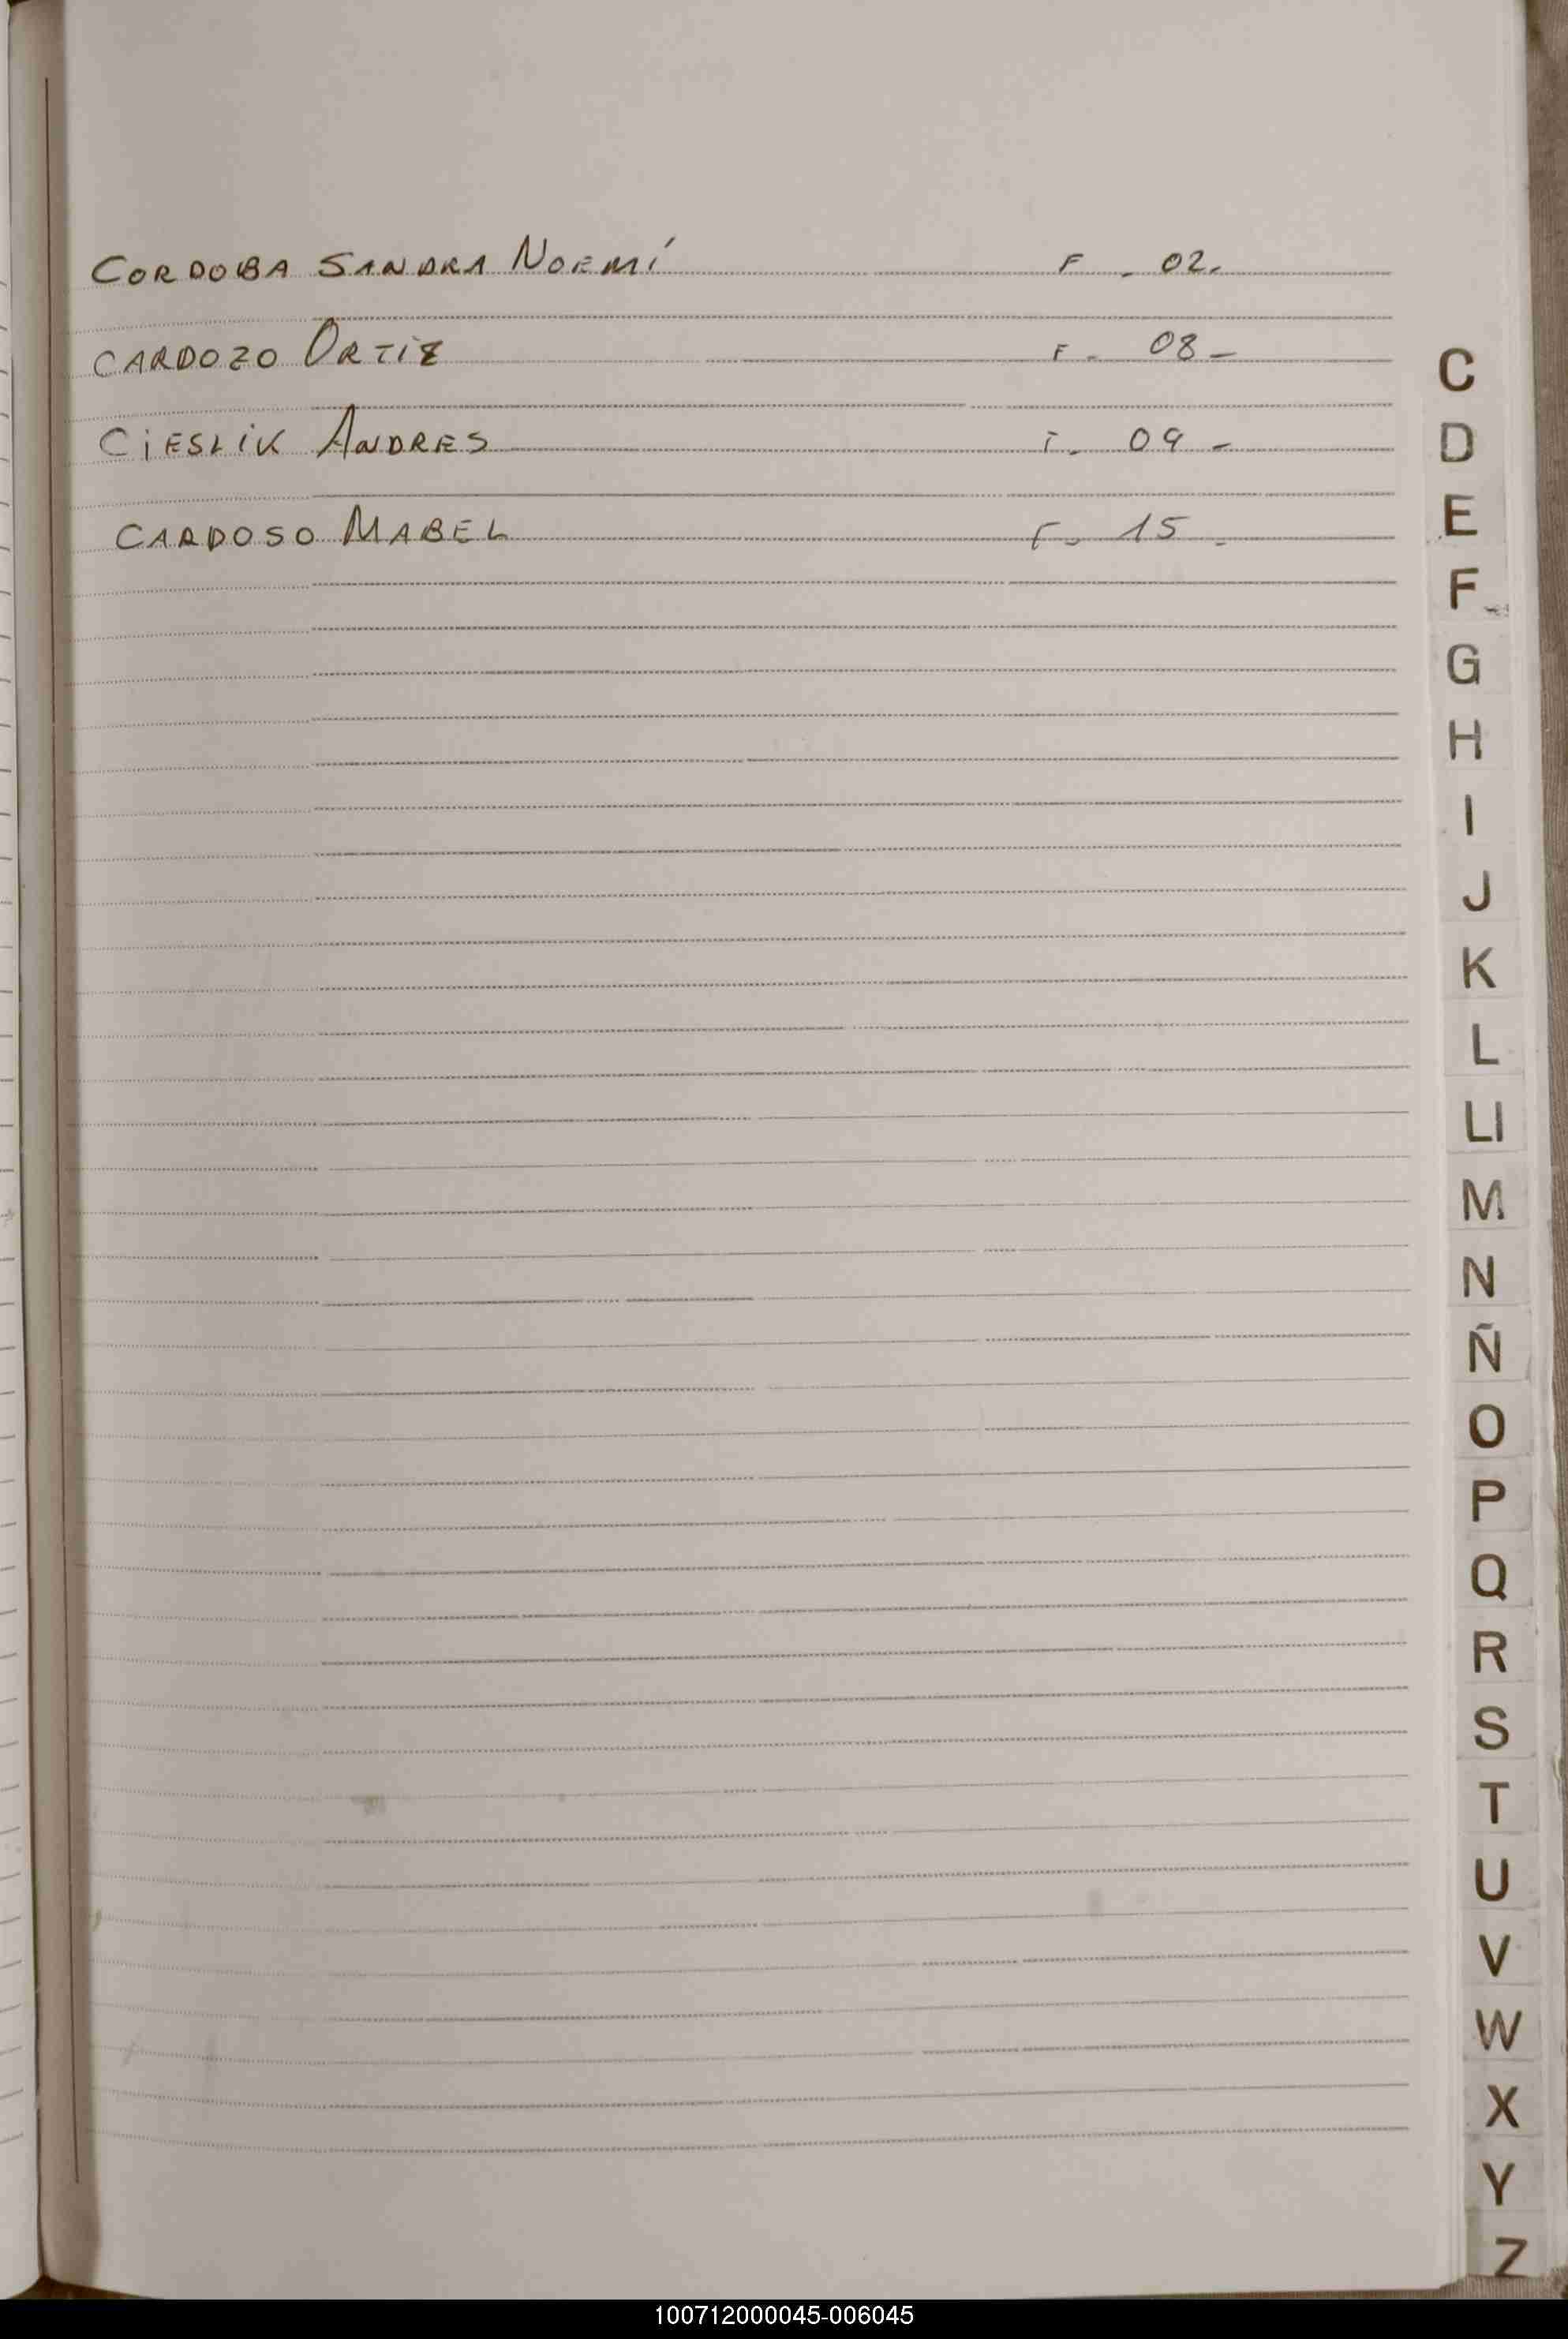 CORDOBA SANDRA NOEMÍ F . 02.
CARDOZO ORTIZ F - 08 -
CIESLIK ANDRES F - 09 -
CARDOSO MABEL F - 15 -
C
D
E
F
G
H
I
J
K
L
Ll
M
N
Ñ
O
P
Q
R
S
T
U
V
W
X
Y
Z
100712000045-006045